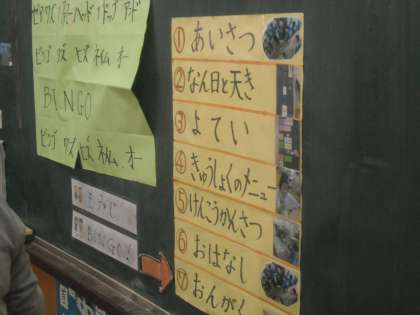 BINGO
ビンゴ ワズ ヒズ ネイム オー
BINGO
ビンゴ ワズ ヒズ ネイム、オー
もみじ
BINGO!
①あいさつ
②なん日と天き
③よてい
④きゅうしょくのメニュー
⑤けんこうかんさつ
⑥おはなし
⑦おんがく